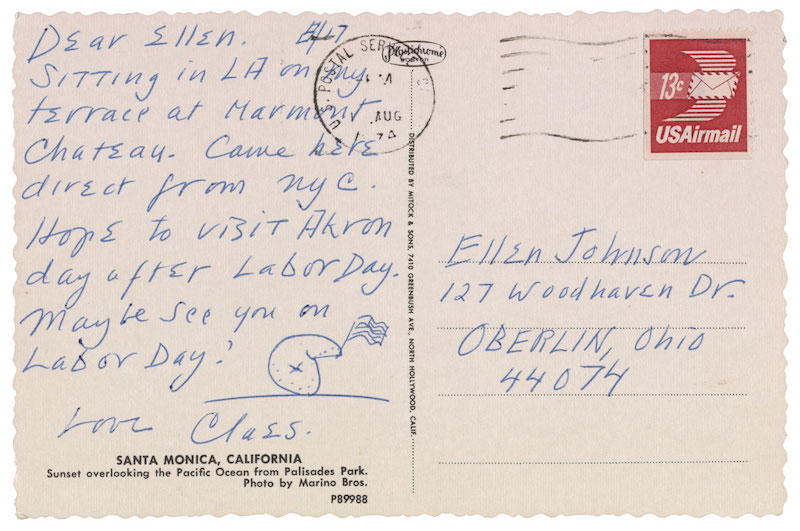 Dear Ellen. 8/17
Sitting in LA on my
terrace at Marmont
Chateau. Came here
direct from NYC.
Hope to visit Akron
day after Labor Day.
Maybe see you on
Labor Day?
Love Claes.
SANTA MONICA, CALIFORNIA
Sunset overlooking the Pacific Ocean from Palisades Park.
Photo by Marino Bros.
P89988
Plastichrome
BOSTON
U.S. POSTAL SERVICE
AUG
DISTRIBUTED BY MITOCK & SONS, 7410 GREENBUSH AVE., NORTH HOLLYWOOD, CALIF.
13c
USAirmail
Ellen Johnson
127 Woodhaven Dr.
OBERLIN, Ohio
44074